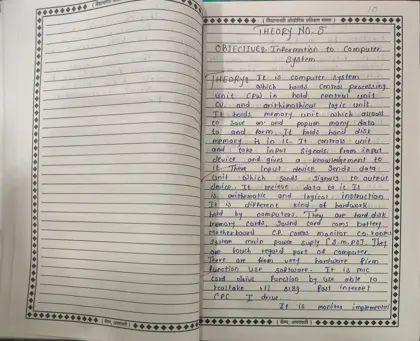 10
THEORY NO. 5
OBJECTIVE: Information to Computer
System
THEORY: It is computer system
which holds control processing
unit CPU in hold central unit
CU. and arithimathical logic unit.
It holds memory unit which allows
to save on and many data
to and form. It holds hard disk
memory is in it. It controls unit
and take input signals from input
device and gives a knowledgement to
it. There input device sends data
unit which sends signals to output
device. It recieve data to it. It
is arithmatic and logical instruction
It is different kind of hardwork
held by computers. They are hard disk
memory cards, sound card coms battery
motherboard CP. coms monitor
System main power suply [S.m.P.S]. They
are touch regard part of computer.
There are from very hardware firm
function use software. It is mic
card drive function by use able to
fast internet
CPC I drive.
It is monitor implemental